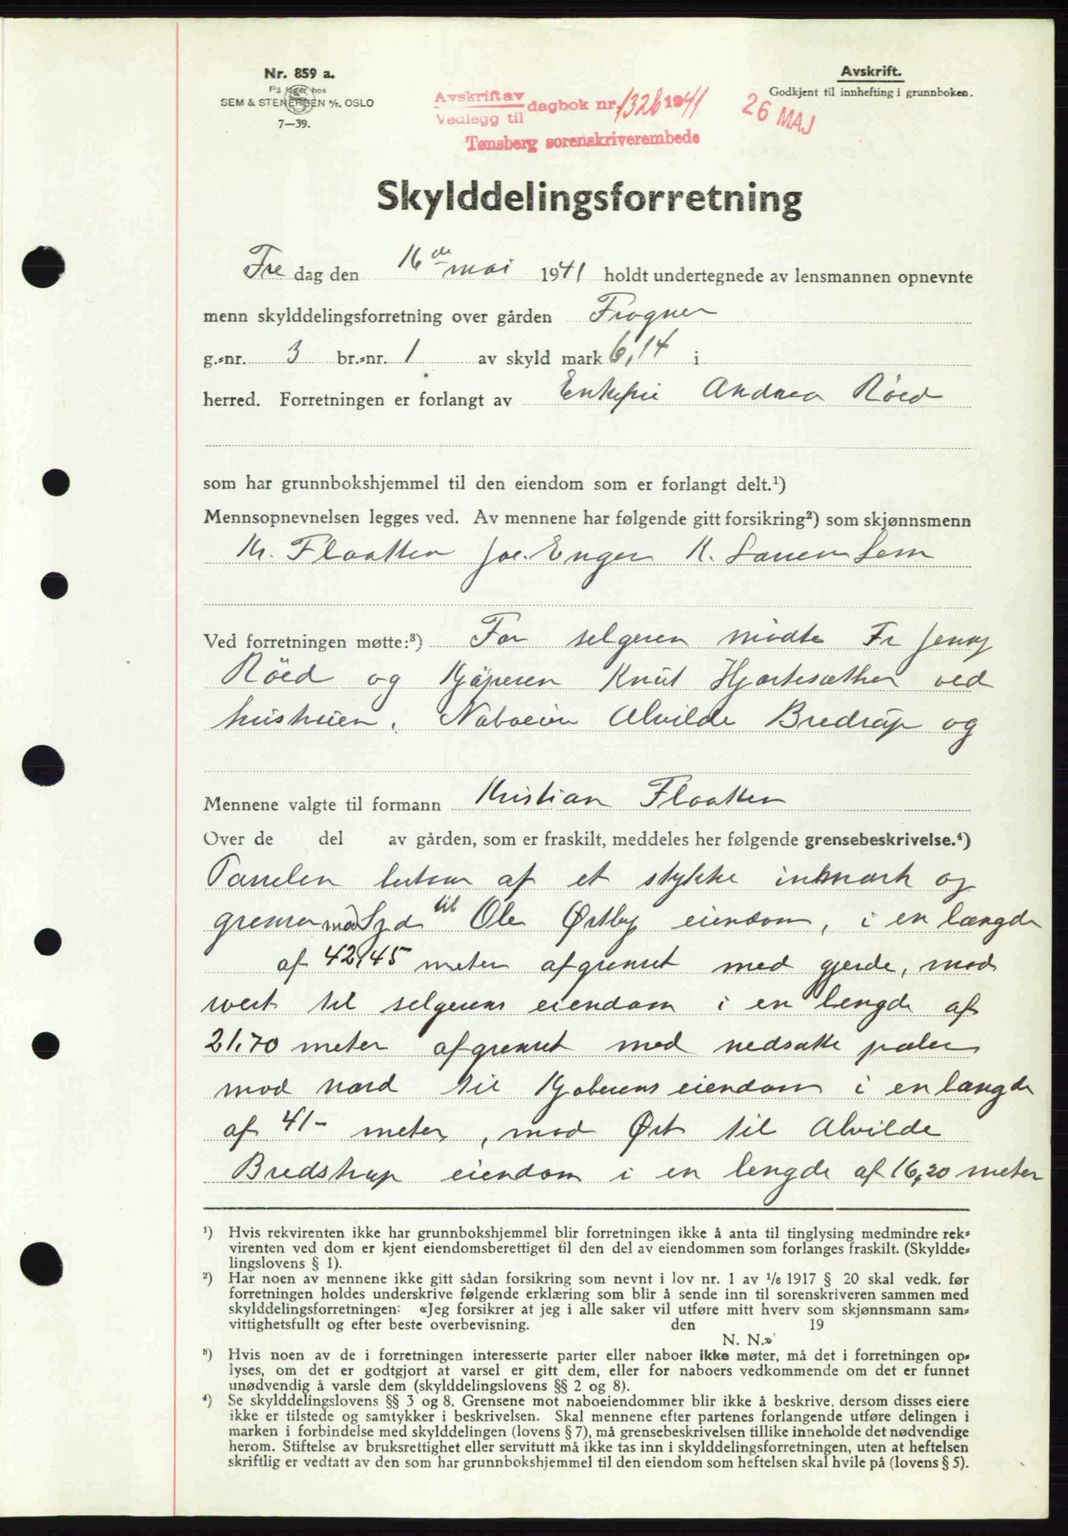 Nr. 859 a.
På lager hos
SEM & STENERSEN A/S, OSLO
7—39.
Avskrift.
Godkjent til innhefting i grunnboken.
Avskrift av
Vedlegg til
dagbok nr. 1326 1941
26 MAJ
Tønsberg sorenskriverembede
Skylddelingsforretning
Fre dag den 16de mai 1941 holdt undertegnede av lensmannen opnevnte
menn skylddelingsforretning over gården Frogner
g.-nr. 3 br.-nr. 1 av skyld mark 6,14 i
herred. Forretningen er forlangt av Enkefru Andrea Röed
som har grunnbokshjemmel til den eiendom som er forlangt delt.¹)
Mennsopnevnelsen legges ved. Av mennene har følgende gitt forsikring²) som skjønnsmenn
Kr. Flaatten Joe. Enger K. Sem
Ved forretningen møtte:³) For selgeren mödte Fr Jenny
Röed og Kjöperen Knut Hjortesæther ved
hustruen. Naboein Alvilde Bredrup og
Mennene valgte til formann Kristian Flaatten
Over de del av gården, som er fraskilt, meddeles her følgende grensebeskrivelse.⁴)
Parselen af et stykke inkmark og
grenser mod Syd til Ole Østby eiendom, i en længde
af 42,45 meter afgrenset med gjerde, mod
vest til selgerens eiendom i en lengde af
21,70 meter afgrenset med nedsatte pæler
mod nord til Kjöberens eiendom i en længde
af 41- meter, mod Øst til Alvilde
Bredstrup eiendom i en lengde af 16,20 meter
¹) Hvis rekvirenten ikke har grunnbokshjemmel blir forretningen ikke å anta til tinglysing medmindre rek-
virenten ved dom er kjent eiendomsberettiget til den del av eiendommen som forlanges fraskilt. (Skyldde-
lingslovens § 1).
²) Har noen av mennene ikke gitt sådan forsikring som nevnt i lov nr. 1 av 1/8 1917 § 20 skal vedk. før
forretningen holdes underskrive følgende erklæring som blir å sende inn til sorenskriveren sammen med
skylddelingsforretningen: «Jeg forsikrer at jeg i alle saker vil utføre mitt hverv som skjønnsmann sam-
vittighetsfullt og efter beste overbevisning. den 19
N. N.»
³) Hvis noen av de i forretningen interesserte parter eller naboer ikke møter, må det i forretningen op-
lyses, om det er godtgjort at varsel er gitt dem, eller for naboers vedkommende om det er funnet
unødvendig å varsle dem (skylddelingslovens §§ 2 og 8).
⁴) Se skylddelingslovens §§ 3 og 8. Grensene mot naboeiendommer blir ikke å beskrive, dersom disses eiere
ikke er tilstede og samtykker i beskrivelsen. Skal mennene efter partenes forlangende utføre delingen i
marken i forbindelse med skylddelingen (lovens § 7), må grensebeskrivelsen tillike inneholde det nødvendige
herom. Stiftelse av bruksrettighet eller servitutt må ikke tas inn i skylddelingsforretningen, uten at heftelsen
skriftlig er vedtatt av den som har grunnbokshjemmel til den eiendom som heftelsen skal hvile på (lovens § 5).